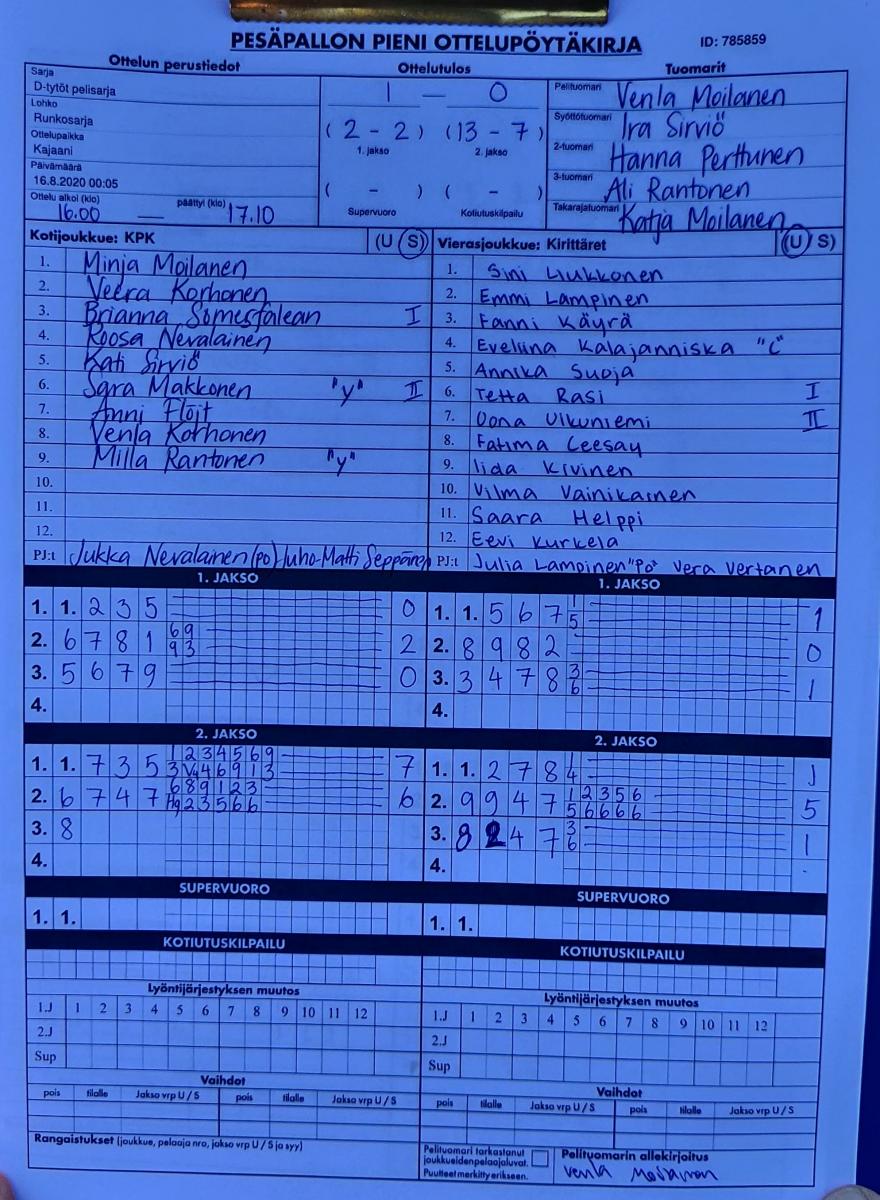 PESÄPALLON PIENI OTTELUPÖYTÄKIRJA ID: 785859
Ottelun perustiedot Ottelutulos Tuomarit
Sarja
D-tytöt pelisarja
Lohko
Runkosarja
Ottelupaikka
Kajaani
Päivämäärä
16.8.2020 00:05
Ottelu alkoi (klo) päättyi (klo)
16.00 — 17.10
1 — 0
(2 - 2) (13 - 7)
1. jakso 2. jakso
( - ) ( - )
Supervuoro Kotiutuskilpailu
Pelituomari Venla Moilanen
Syöttötuomari Ira Sirviö
2-tuomari Hanna Perttunen
3-tuomari Ali Rantonen
Takarajatuomari Katja Moilanen
Kotijoukkue: KPK (U S)
1. Minja Moilanen
2. Veera Korhonen
3. Brianna Somesfalean I
4. Roosa Nevalainen
5. Kati Sirviö
6. Sara Makkonen "y" II
7. Anni Flöjt
8. Venla Korhonen
9. Milla Rantonen "y"
10.
11.
12.
PJ:t Jukka Nevalainen (po) Juho-Matti Seppänen
Vierasjoukkue: Kirittäret (U S)
1. Sini Liukkonen
2. Emmi Lampinen
3. Fanni Käyrä
4. Eveliina Kalajanniska "C"
5. Annika Suoja
6. Tetta Rasi I
7. Oona Ulkuniemi II
8. Fatima Ceesay
9. Iida Kivinen
10. Vilma Vainikainen
11. Saara Helppi
12. Eevi Kurkela
PJ:t Julia Lampinen "Po" Vera Vertanen
1. JAKSO
1. 1. 2 3 5 0
2. 6 7 8 1 6 9 2
9 3
3. 5 6 7 9 0
4.
1. JAKSO
1. 1. 5 6 7 1 1
5
2. 8 9 8 2 0
3. 3 4 7 8 3 1
6
4.
2. JAKSO
1. 1. 7 3 5 1 2 3 4 5 6 9 7
3 V4 4 6 9 1 3
2. 6 7 4 7 6 8 9 1 2 3 6
H9 2 3 5 6 6
3. 8
4.
2. JAKSO
1. 1. 2 7 8 1 1
4
2. 9 9 4 7 1 2 3 5 6 5
5 6 6 6 6
3. 8 2 4 7 3 1
6
4.
SUPERVUORO
1. 1.
SUPERVUORO
1. 1.
KOTIUTUSKILPAILU
KOTIUTUSKILPAILU
Lyöntijärjestyksen muutos
1.J 1 2 3 4 5 6 7 8 9 10 11 12
2.J
Sup
Lyöntijärjestyksen muutos
1.J 1 2 3 4 5 6 7 8 9 10 11 12
2.J
Sup
Vaihdot
pois tilalle Jakso vrp U / S pois tilalle Jakso vrp U / S
Vaihdot
pois tilalle Jakso vrp U / S pois tilalle Jakso vrp U / S
Rangaistukset (joukkue, pelaaja nro, jakso vrp U / S ja syy)
Pelituomari tarkastanut
joukkueiden pelaajaluvat.
Puutteet merkitty erikseen.
Pelituomarin allekirjoitus
Venla Moilanen